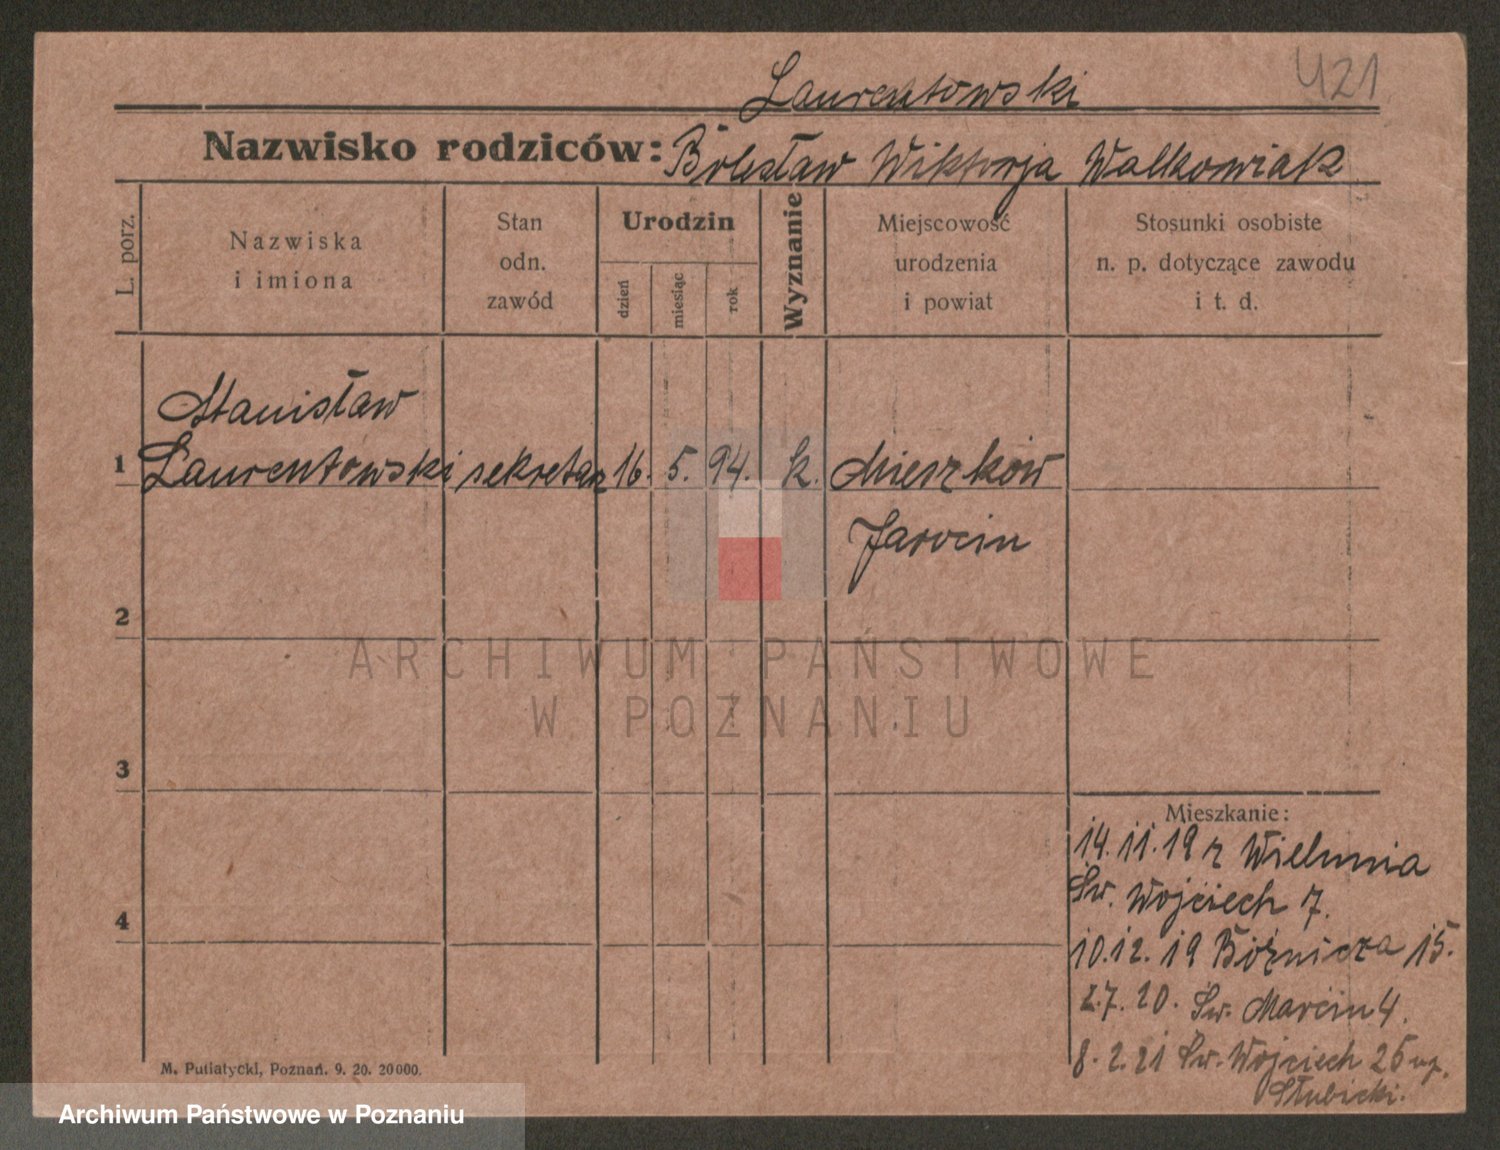 Laurentowski
421
Nazwisko rodziców: Bolesław Wiktorja Walkowiak
L. porz.
Nazwiska
i imiona
Stan
odn.
zawód
Urodzin
dzień
miesiąc
rok
Wyznanie
Miejscowość
urodzenia
i powiat
Stosunki osobiste
n. p. dotyczące zawodu
i t. d.
Stanisław
1 Laurentowski sekretarz 16. 5. 94. k. Mieszków
Jarocin
2
3
4
Mieszkanie:
14.11.19 z Wielunia
Św. Wojciech 7.
10.12.19 Bóżnicza 15.
2.7.20. Św. Marcin 4.
8.2.21 Św. Wojciech 25 up.
Słubicki.
M. Putiatycki, Poznań. 9. 20. 20000.
ARCHIWUM PAŃSTWOWE
W POZNANIU
Archiwum Państwowe w Poznaniu